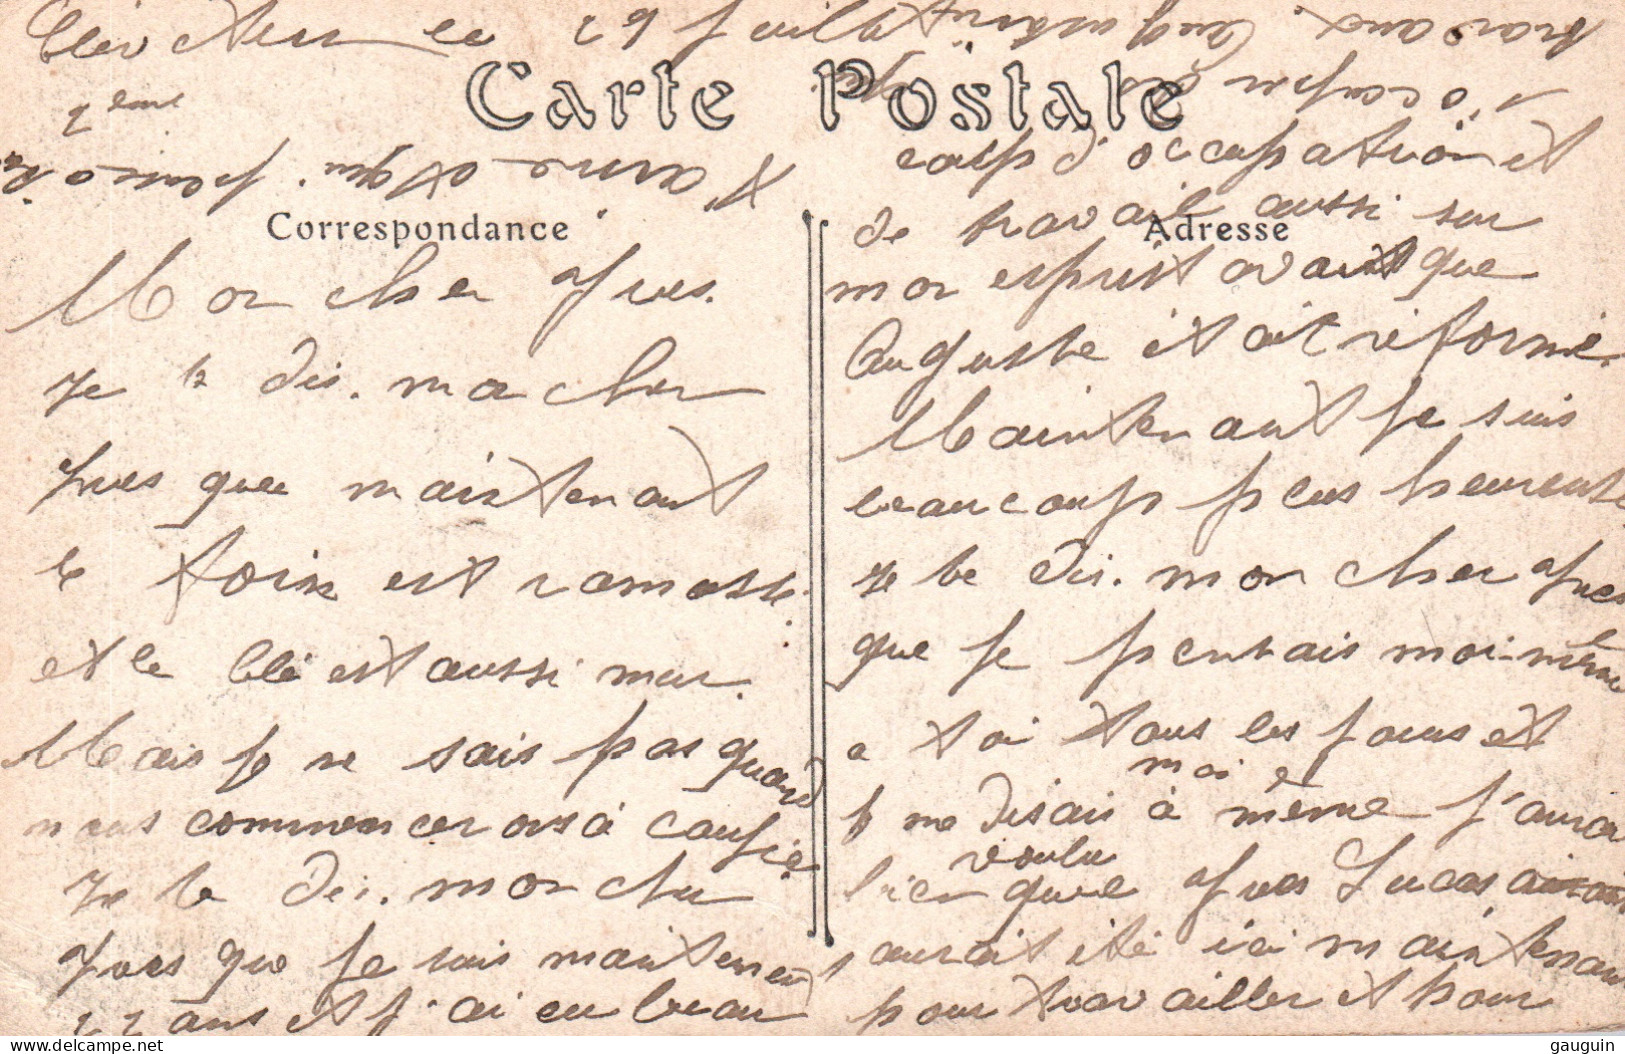 le 29 Juillet
2eme
Carte Postale
Correspondance
Adresse
Mon cher Yves.
Je te dis. mon cher
Yves que maintenant
le foin est ramassé.
et le blé est aussi mur.
Mais je ne sais pas quand
nous commencerons à
Je te dis. mon cher
Yves que je suis maintenent
22 ans et j'ai eu beau
corps d'occupation et
de travail aussi sur
mon esprit avant que
Auguste était réformé.
Maintenant je suis
beaucoup plus heureuse
Je te dis. mon cher Yves
que je pensais moi-même
a toi tous les jours et
je me disais à moi même j'aurai
bien voulu que Yves Lucas
aurait été ici maintenant
pour travailler et pour
s'occuper des
travaux.
gauguin ©www.delcampe.net